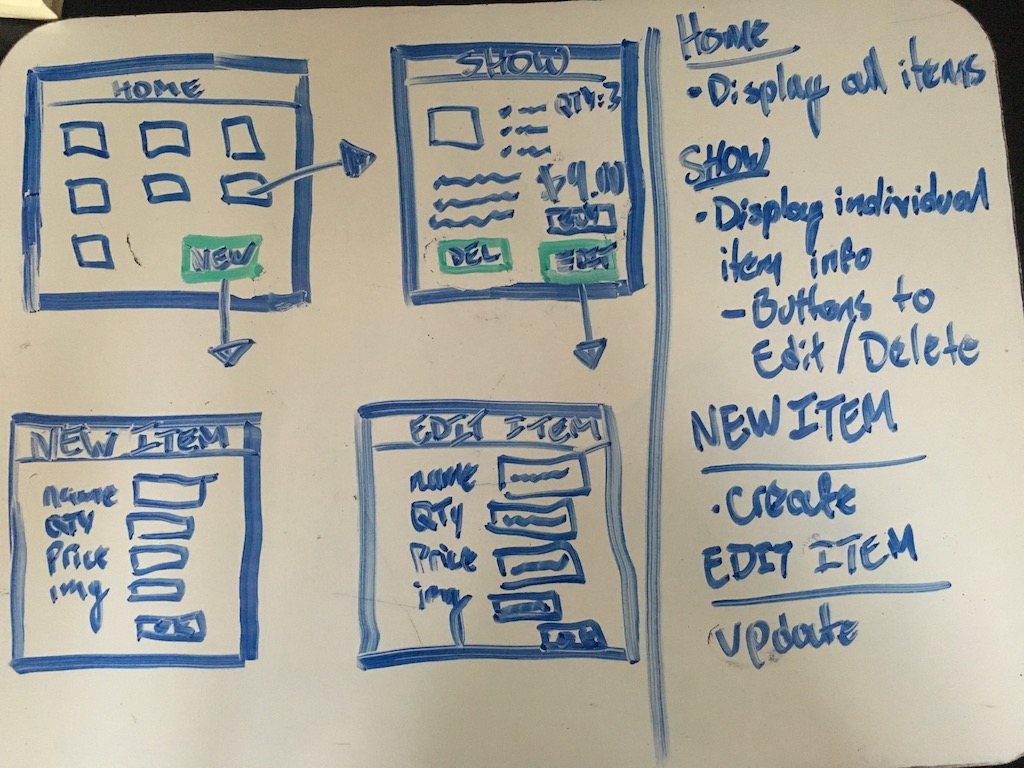 HOME
NEW
SHOW
QTY:3
$9.00
BUY
DEL
EDIT
NEW ITEM
name
QTY
Price
img
OK
EDIT ITEM
name
QTY
Price
img
OK
Home
• Display all items
SHOW
• Display individual
item info
- Buttons to
Edit/Delete
NEW ITEM
• Create
EDIT ITEM
update